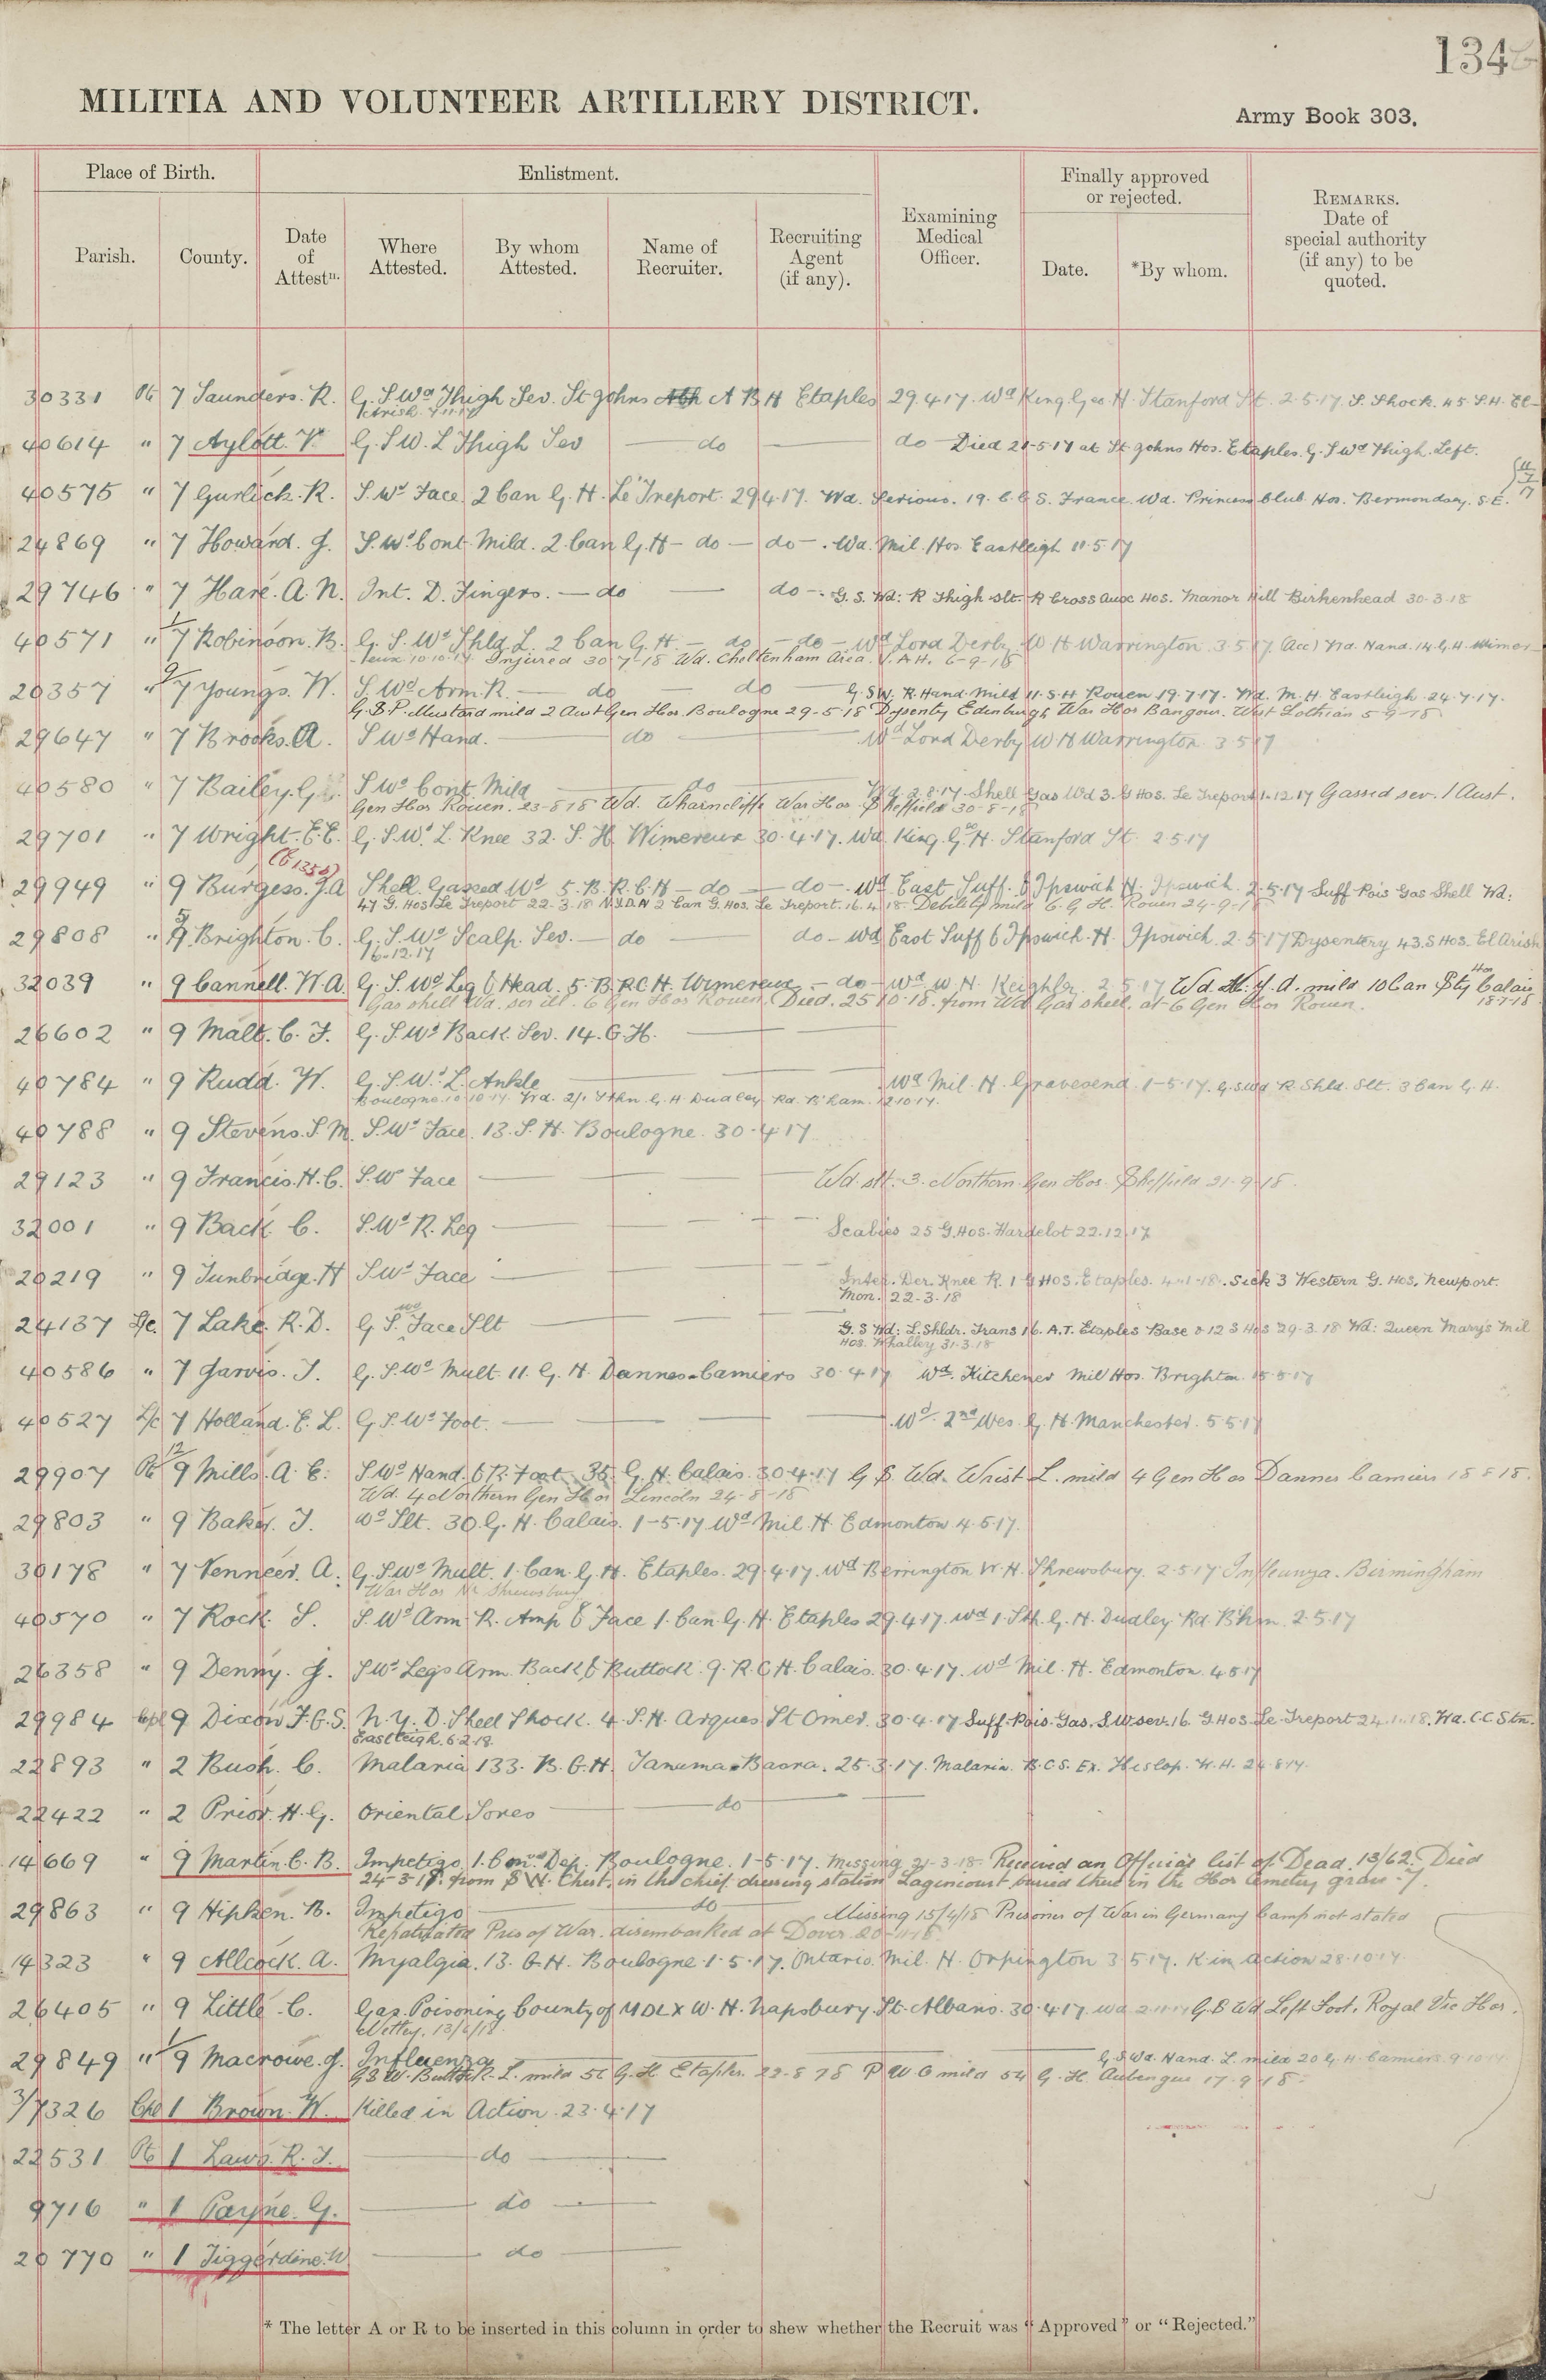 134
MILITIA AND VOLUNTEER ARTILLERY DISTRICT.
Army Book 303.
Place of Birth.
Enlistment.
Finally approved
or rejected.
REMARKS.
Date of
special authority
(if any) to be
quoted.
Parish.
County.
Date
of
Attestn.
Where
Attested.
By whom
Attested.
Name of
Recruiter.
Recruiting
Agent
(if any).
Examining
Medical
Officer.
Date.
*By whom.
30331 Pte 7 Saunders. R. G. S. Wd Thigh Sev. St Johns A B H Etaples 29.4.17. Wd King Geo H. Stanford St. 2.5.17. S. Shock. 45 S.H. El-
Arish 7.11.17
40614 " 7 Aylott. V. G. S. W. L Thigh Sev do do Died 21-5-17 at St Johns Hos. Etaples. G. S Wd Thigh. Left.
40575 " 7 Gurlick. R. S. Wd Face 2 Can G. H. Le Treport. 29.4.17. Wd. Serious. 19. C. C. S. France Wd. Princess Club Hos. Bermondsey. S.E.
24869 " 7 Howard. J. S. Wd Cont. Mild. 2 Can G. H - do - do -. Wd. Mil. Hos Eastleigh 11.5.17
29746 " 7 Hare. A. N. Int. D. Fingers. - do do -. G. S. Wd: R Thigh slt. R Cross Aux Hos. Manor Hill Birkenhead 30-3-18
40571 " 7 Robinson. B. G. S. Wd Shld L. 2 Can G. H. - do - do - Wd Lord Derby W H Warrington. 3.5.17. (Acc) Wd. Hand. 14. G. H. Wimer-
eux 10.10.17. Injured 30-7-18 Wd. Cheltenham Area. V. A H. 6-9-18
20357 " 9/7 Youngs. W. S. Wd Arm R. - do - do - G. S W. R. Hand Mild 11. S. H Rouen 19.7.17. Wd. M. H. Eastleigh. 24.7.17.
G. S. P. Mustard mild 2 Aust Gen Hos Boulogne 29-5-18 Dysentry Edinburgh War Hos Bangour. West Lothian 5-9-18
29647 " 7 Brooks. A. S Wd Hand. do Wd Lord Derby W H Warrington 3.5.17
40580 " 7 Bailey. G. S Wd Cont. Mild do Wd 2.8.17. Shell Gas Wd 3. G Hos. Le Treport 1-12.17 Gassed sev. 1 Aust.
Gen Hos Rouen. 23-8-18 Wd. Wharncliffe War Hos. Sheffield 30-8-18
29701 " 7 Wright. E. E. G. S. Wd L. Knee 32. S. H. Wimereux 30.4.17. Wd. King. Geo H. Stanford St. 2.5.17
29949 " 9 Burgess. J. A Shell. Gassed Wd 5. B. R. C. H - do - do -. Wd East Suff. & Ipswich H. Ipswich. 2.5.17 Suff Pois Gas Shell Wd:
47 G. Hos Le Treport 22.3.18 N.Y.D.N 2 Can G. Hos. Le Treport. 16.4.18 Debility mild 6. G H. Rouen 24-9-18
29808 " 9 Brighton. C. G. S. Wd Scalp. Sev. - do do - Wd East Suff & Ipswich. H. Ipswich. 2.5.17 Dysentery 43. S Hos. El Arish
16.12.17
32039 " 9 Cannell. W. A. G. S. Wd Leg & Head. 5. B. R. C. H. Wimereux - do - Wd W H. Keighley. 2.5.17 Wd. N. Y. D. mild 10 Can Sty Hos Calais
18-7-18
Gas shell Wd. ser ill. 6 Gen Hos Rouen. Died. 25-10-18. from Wd Gas shell. at 6 Gen Hos Rouen.
26602 " 9 Malt. C. F. G. S. Wd Back. Sev. 14. G. H.
40784 " 9 Rudd. W. G. S. Wd L. Ankle Wd Mil. H. Gravesend. 1-5.17. G. S Wd R. Shld. Slt. 3 Can G. H.
Boulogne. 10.10.17. Wd. 2/1 Sthn. G. H Dudley Rd. B'ham. 12.10.17.
40788 " 9 Stevens. S. M. S. Wd Face. 13. S. H. Boulogne. 30.4.17
29123 " 9 Francis. H. C. S. W Face Wd. slt. 3. Northern Gen Hos. Sheffield 21-9-18.
32001 " 9 Back. C. S. Wd R. Leg Scabies 25 G. Hos. Hardelot 22.12.17
20219 " 9 Tunbridge. H S Wd Face Inter. Der. Knee R. 1 G Hos. Etaples. 4-1-18. Sick 3 Western G. Hos. Newport.
Mon. 22-3-18
24137 L/c. 7 Lake. R. D. G S. Wd Face Slt G. S Wd: L. Shldr. Trans 16. A.T. Etaples Base & 12 S Hos 29-3.18 Wd: Queen Marys Mil
Hos. Whalley 31-3-18
40586 " 7 Jarvis. T. G. S. Wd Mult. 11. G. H. Dannes-Camiers 30.4.17 Wd. Kitchener Mil Hos. Brighton. 15.5.17
40527 L/c 7 Holland. E. L. G. S. Wd Foot. Wd. 2nd Wes. G. H. Manchester. 5.5.17
29907 Pte 12/9 Mills. A. E. S Wd Hand. & R. Foot. 35. G. H. Calais. 30.4.17 G. S. Wd. Wrist L. mild 4 Gen Hos Dannes Camiers 18.8.18.
Wd. 4 Northern Gen Hos Lincoln 24-8-18
29803 " 9 Baker. T. Wd Slt. 30. G. H. Calais. 1-5.17. Wd Mil. H. Edmonton 4.5.17.
30178 " 7 Venneer. A. G. S Wd Mult. 1. Can. G. H. Etaples. 29.4.17. Wd Berrington W. H. Shrewsbury. 2.5.17. Influenza. Birmingham
War Hos Nr Shrewsbury
40570 " 7 Rock. S. S. Wd Arm R. Amp & Face 1. Can G. H. Etaples 29.4.17. Wd 1. Sth. G. H. Dudley Rd. B'ham. 2.5.17
26358 " 9 Denny. J. S Wd Legs Arm Back & Buttock. 9. R. C H. Calais. 30.4.17. Wd Mil. H. Edmonton. 4.5.17
29984 Cpl 9 Dixon F. G. S. N. Y. D. Shell Shock. 4. S. H. Arques St Omer. 30.4.17 Suff-Pois. Gas. S. W. sev. 16. G. Hos. Le Treport 24.1.18. Wd. C. C. Stn.
Eastleigh. 6.2.18
22893 " 2 Bush. C. Malaria 133. B. G. H. Tanuma. Basra. 25.3.17. Malaria. B. C. S. Ex. Heslop. W. H. 24.8.17.
22422 " 2 Prior. H. G. Oriental Sores do
14669 " 9 Martin. C. B. Impetigo 1. Conv. Dep. Boulogne. 1-5.17. Missing 21-3-18. Received an Official list of Dead. 13/62. Died
24-3-18. from S W. Chest, in the chief dressing station Lagnicourt buried there in the Hos Cemetery grave 7.
29863 " 9 Hipken. B. Impetigo do Missing 15/4/18 Prisoner of War in Germany Camp not stated
Repatriated Pris of War. disembarked at Dover
14323 " 9 Allcock. A. Myalgia. 13. G. H. Boulogne 1.5.17. Ontario. Mil. H. Orpington 3.5.17. K in action 28.10.17.
26405 " 9 Little. C. Gas. Poisoning County of MDLX W. H. Napsbury St. Albans. 30.4.17. Wd. 2.11.17 G. S Wd Left Foot. Royal Vic Hos.
Netley. 13/4/18.
29849 " 1/9 Macrowe. J. Influenza G. S Wd. Hand. L. mild 20 G. H. Camiers. 9.10.17
G S W. Buttock L. mild 56 G. H Etaples. 22-8-18 P W G mild 54 G. H. Aubengue 17.9.18.
3/7326 Cpl 1 Brown. W. Killed in Action. 23.4.17
22531 Pte 1 Laws. R. T. do
9716 " 1 Payne. G. do
20770 " 1 Tiggerdine. W do
* The letter A or R to be inserted in this column in order to shew whether the Recruit was "Approved" or "Rejected."